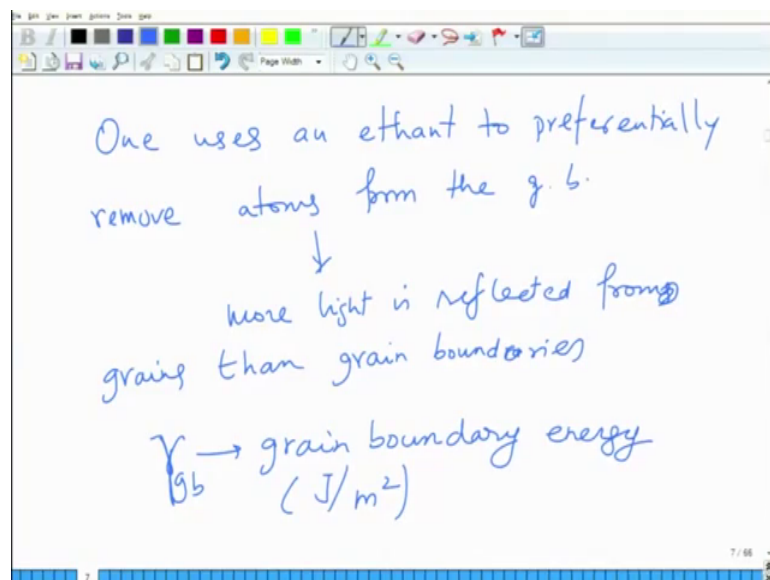 File Edit View Insert Actions Tools Help
B I Page Width
One uses an ethant to preferentially
remove atoms from the g.b.
↓
more light is reflected from
grains than grain boundaries
γgb → grain boundary energy
(J/m²)
7 / 66
7